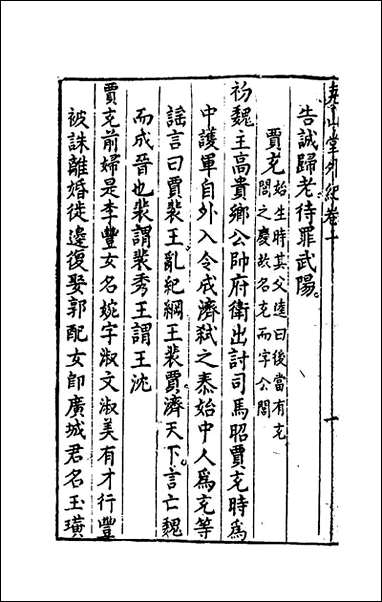 堯山堂外紀卷十
告誠歸老待罪武陽。
賈充始生時其父逵曰後當有充
閭之慶故名充而字公閭
初魏主高貴鄉公帥府衛出討司馬昭賈充時為
中護軍自外入令成濟弒之泰始中人為充等
謠言曰賈裴王亂紀綱王裴賈濟天下。言亡魏
而成晉也裴謂裴秀王謂王沈
賈充前婦是李豐女名婉字淑文淑美有才行豐
被誅離婚徙邊復娶郭配女即廣城君名玉璜